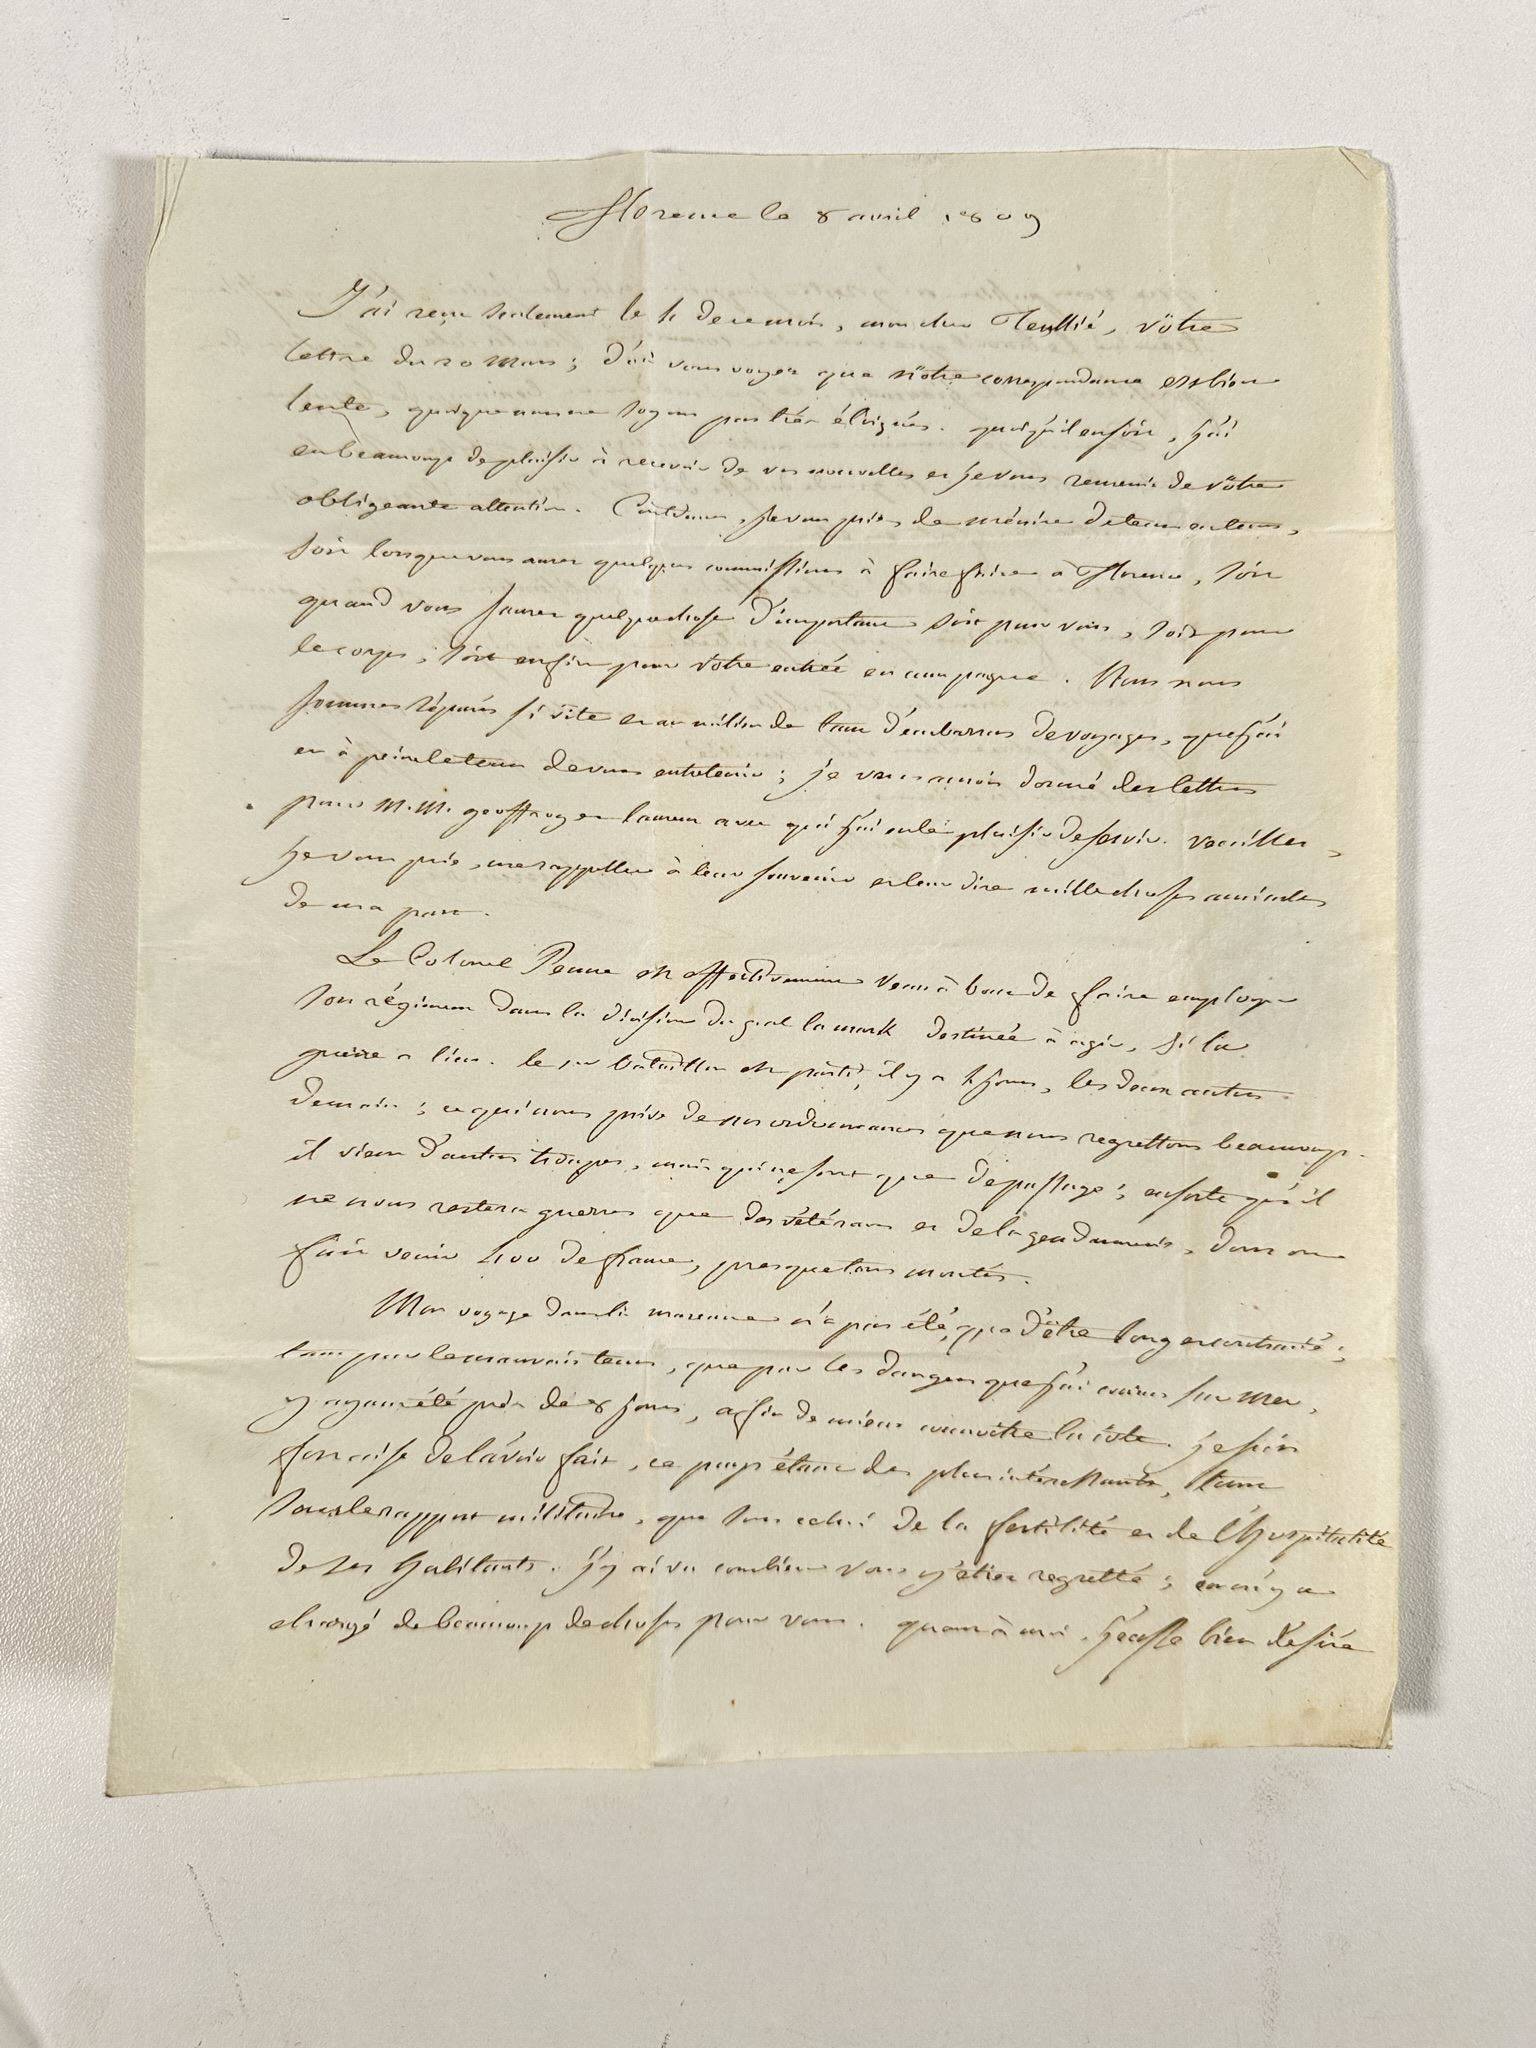 Florence le 8 avril 1809
J'ai reçu seulement le 4 de ce mois, mon cher Teullié, vôtre
lettre du 20 Mars; d'où vous voyez que nôtre correspondance est bien
lente, quoique nous ne soyons pas très éloignés. quoiqu'il en soit, j'ai
eu beaucoup de plaisir à recevoir de vos nouvelles et je vous remercie de vôtre
obligeante attention. Continuez, je vous prie, de m'écrire de tems en tems,
soit lorsque vous aurez quelques commissions à faire faire à Florence, soit
quand vous saurez quelque chose d'important soit pour vous, soit pour
le corps, soit enfin pour vôtre entrée en campagne. Nous nous
sommes séparés si vite et au milieu de tant d'embarras de voyages, que j'ai
eu à peine le tems de vous entretenir; je vous aurois donné des lettres
pour M.M. geoffroy et laurent avec qui j'ai eu le plaisir de servir. veuillez,
je vous prie, me rappeller à leur souvenir et leur dire mille choses amicales
de ma part.
Le Colonel Penne est effectivement venu à bout de faire employer
son régiment dans la division du gral lamark destinée à agir, si la
guerre a lieu. le 1er bataillon est parti, il y a 4 jours, les deux autres
demain; ce qui nous prive de nos ordonnances que nous regrettons beaucoup.
il vient d'autres troupes, mais qui ne font que de passage; ensorte qu'il
ne nous restera guerres que des vétérans et de la gendarmerie, dont on
fait venir 400 de france, presque tous montés.
Mon voyage dans la maremme n'a pas été que d'être long et contrarié;
tant par le mauvais tems, que par les dangers que j'ai courus sur mer,
y ayant été près de 8 jours, afin de mieux connoître la côte. je suis
fort aise de l'avoir fait, ce pays étant des plus intéressants, tant
sous le rapport militaire, que sous celui de la fertilité et de l'hospitalité
de ses habitants. j'y ai vu combien vous y étiez regretté; on m'y a
chargé de beaucoup de choses pour vous. quant à moi, j'eusse bien désiré